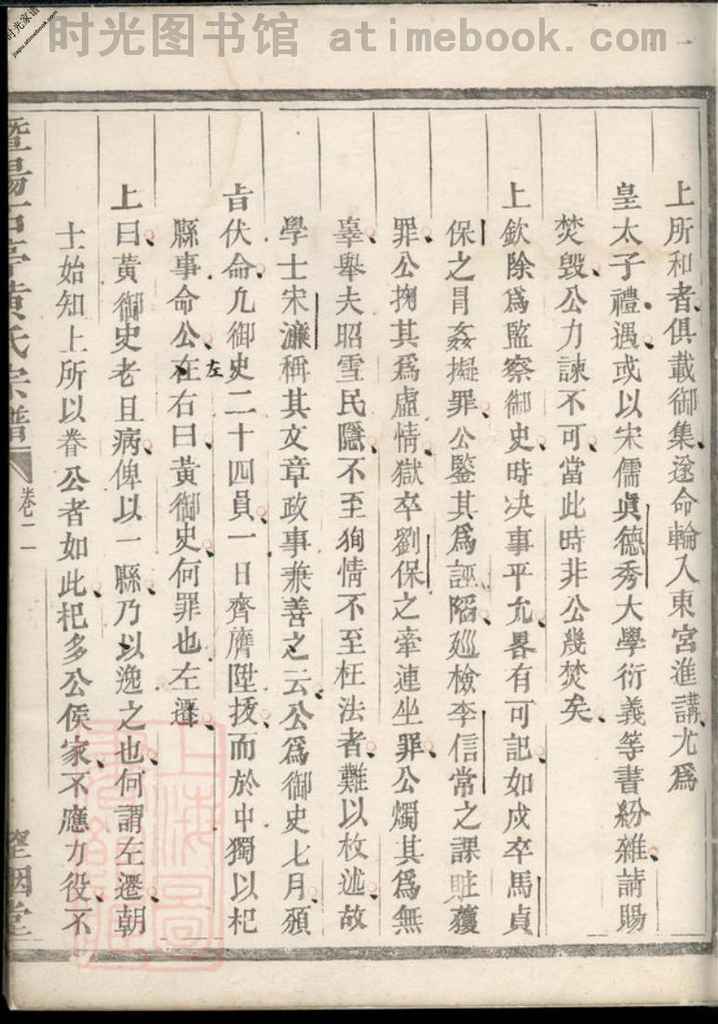 时光图书馆 atimebook.com
时光家谱
上所和者俱載御集遂命輪入東宮進講尤爲
皇太子禮遇或以宋儒眞德秀大學衍義等書紛雜請賜
焚毀公力諫不可當此時非公幾焚矣
上欽除爲監察御史時决事平允畧有可記如戍卒馬貞
保之冐姦擬罪公鑒其爲誣䧟廵檢李信常之課賍獲
罪公掬其爲虛情獄卒劉保之牽連坐罪公燭其爲無
辜舉夫昭雪民隱不至狥情不至枉法者難以枚述故
學士宋濂稱其文章政事兼善之云公爲御史七月頒
㫖伏命凣御史二十四員一日齊膺陞㧞而於中獨以杞
縣事命公在右曰黃御史何罪也左遷
左
上曰黃御史老且病俾以一縣乃以逸之也何謂左遷朝
士始知上所以眷公者如此杞多公侯家不應力役不
暨陽石亭黄氏宗譜 卷二